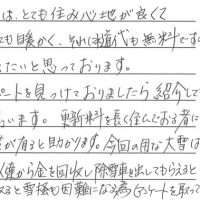 は、とても住み心地が良くて
ても暖かく、それに水道代も無料です
たいと思っております。
ートを見つけておりましたら紹介して
います。更新料を長く住んでおる者に
が有ると助かります。今回の用な大雪は
僕から金を回収し除雪車を出してもらえると
ると雪揺も困難になる為(アンケートを取って